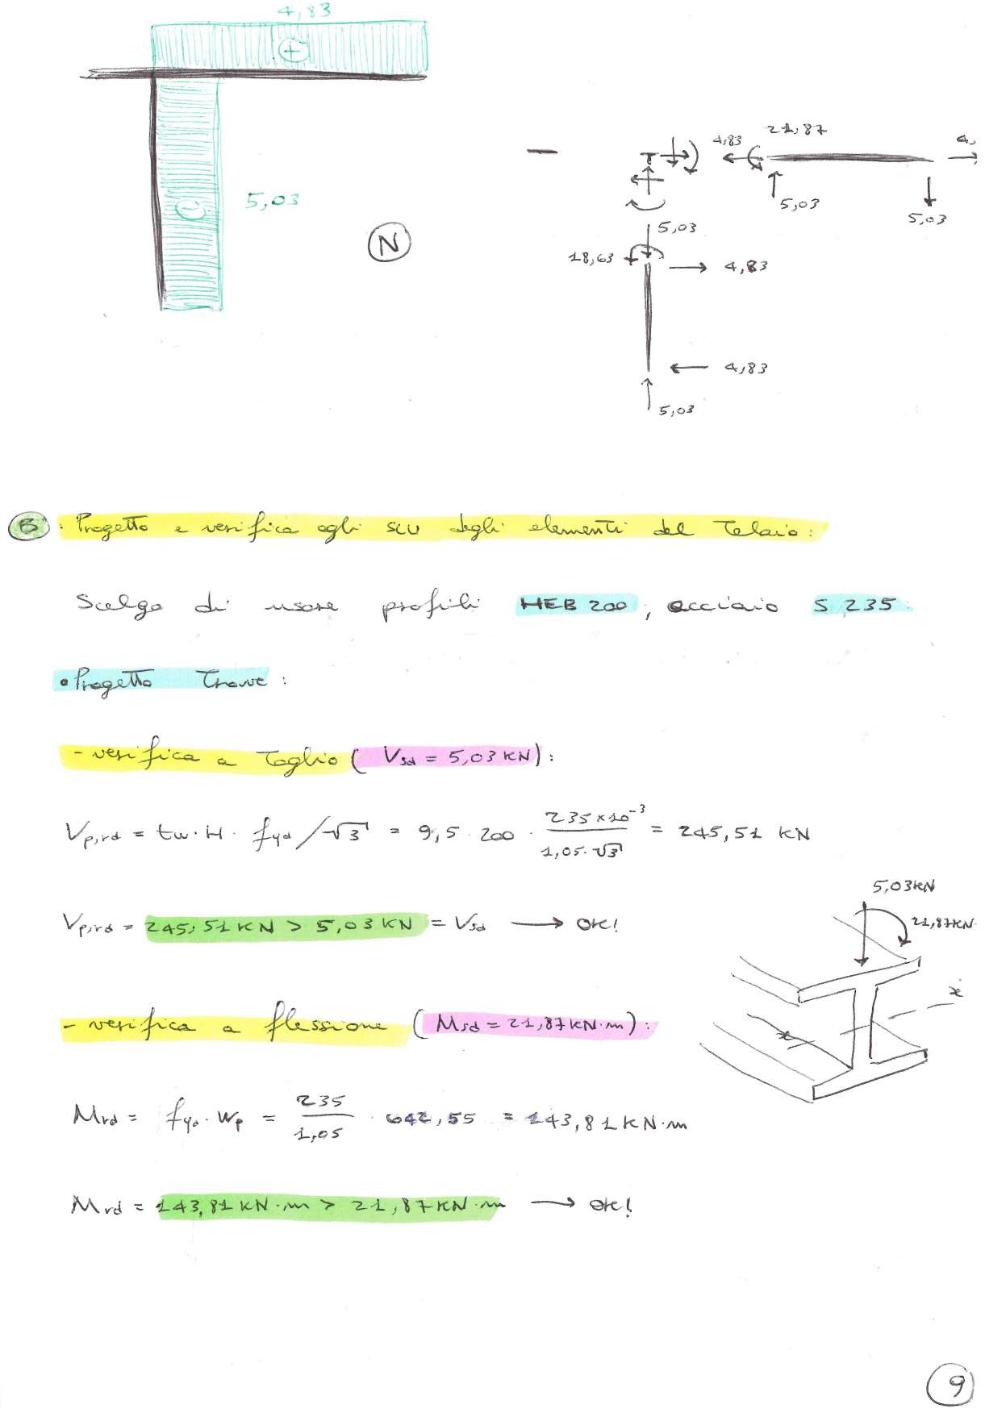 4,83
+
21,87
4,83
4,
5,03
N
5,03
5,03
5,03
18,63
4,83
4,83
5,03
B: Progetto e verifica agli SLU degli elementi del Telaio:
Scelgo di usare profili HEB 200, acciaio S 235.
• Progetto Trave:
- verifica a Taglio (Vsd = 5,03 KN):
Vp,rd = tw · H · fyd / √3 = 9,5 · 200 · 235 × 10⁻³ / 1,05 · √3 = 245,51 KN
5,03 KN
21,87 KN
Vp,rd = 245,51 KN > 5,03 KN = Vsd → OK!
x
x
- verifica a flessione (Msd = 21,87 KN·m):
Mrd = fyd · Wp = 235 / 1,05 · 642,55 = 143,81 KN·m
Mrd = 143,81 KN·m > 21,87 KN·m → OK!
9